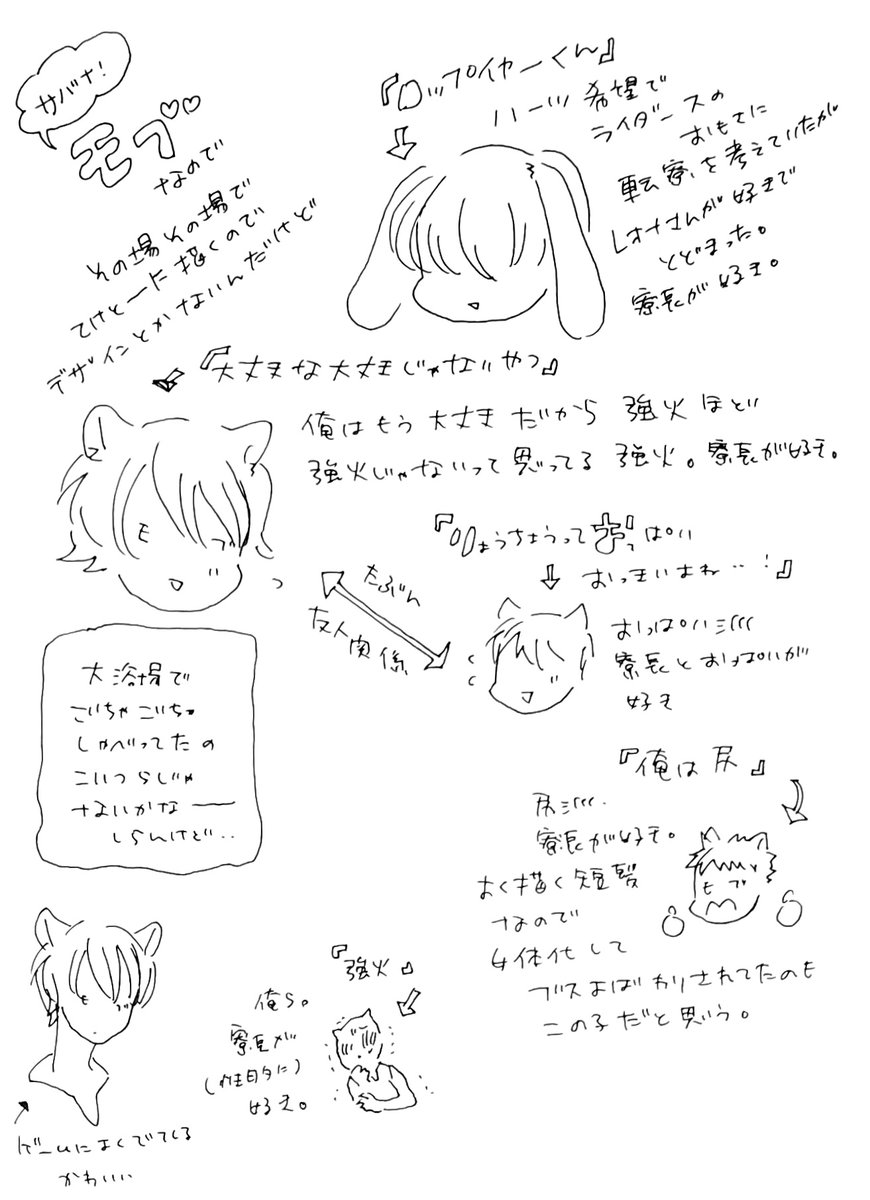 サバナ!
モブ♡♡
なので
その場その場で
てけとーに描くので
デザインとかないんだけど
『ロップイヤーくん』
ハーツ希望で
ライダースの
おもさに
転寮を考えていたが
レオナさんが好きで
とどまった。
寮長が好き。
『大丈夫な大丈夫じゃないやつ』
俺はもう大丈夫だから強火ほど
強火じゃないって思ってる強火。寮長が好き。
モブ
『りょうちょうって
ぱい
おっきいよね‥!』
たぶん
友人関係
おっぱい
寮長とおっぱいが
好き
大浴場で
ごちゃごちゃ
しゃべってたの
こいつらじゃ
ないかなー
しらんけど‥
『俺は尻』
尻
寮長が好き。
よく描く短髪
なので
女体化して
ブスよばわりされてたのも
この子だと思う。
モブ
モブ
『強火』
俺ら。
寮長が
(性的に)
好き。
ゲームによくでてくる
かわいい